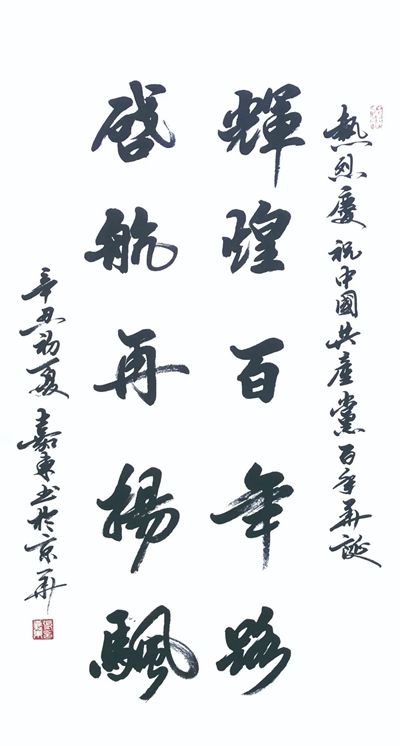 熱烈慶祝中國共產黨百年華誕
輝煌百年路
啟航再揚颿
辛丑初夏嘉東书於京華